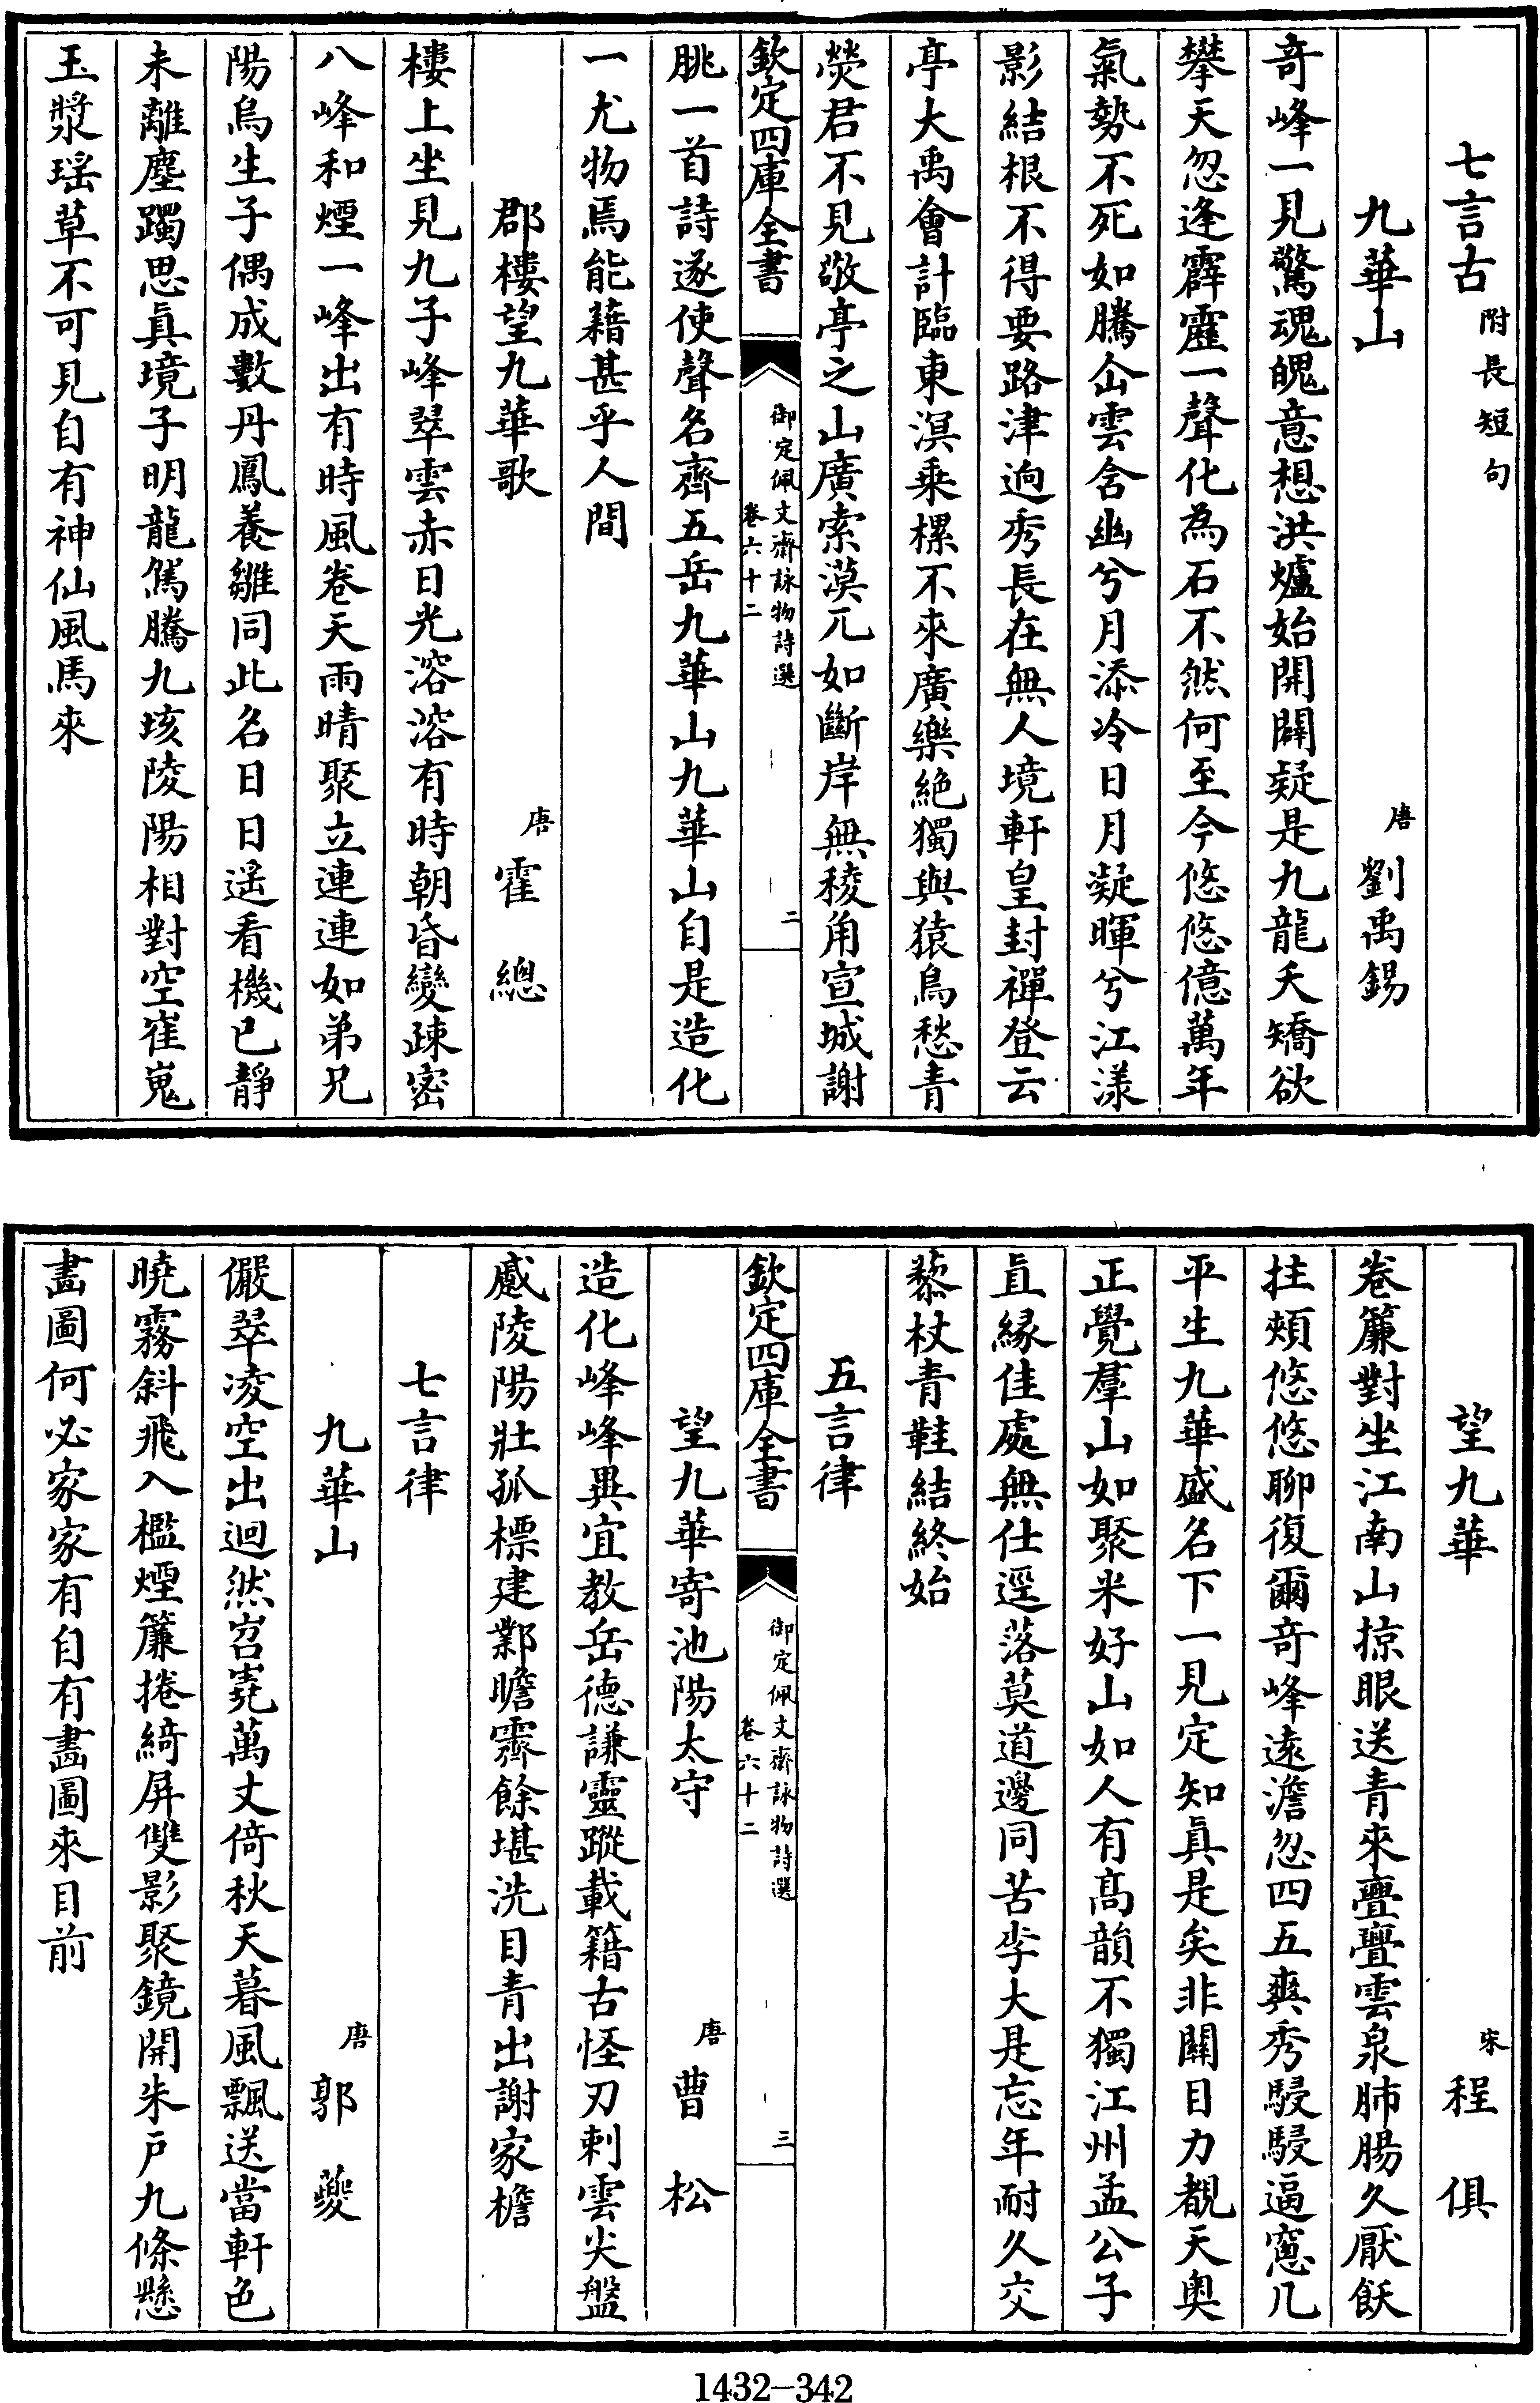 七言古附長短句
九華山 唐 劉禹錫
竒峰一見驚魂魄意想洪爐始開闢疑是九龍夭矯欲
攀天忽逢霹靂一聲化為石不然何至今悠悠億萬年
氣勢不死如騰仚雲含幽兮月添冷日月凝暉兮江漾
影結根不得要路津逈秀長在無人境軒皇封禪登云
亭大禹會計臨東溟乗樏不來廣樂絶獨與猿鳥愁青
熒君不見敬亭之山廣索漠兀如斷岸無稜角宣城謝
欽定四庫全書 御定佩文齋詠物詩選 卷六十二 二
朓一首詩遂使聲名齊五岳九華山九華山自是造化
一尤物焉能藉甚乎人間
郡樓望九華歌 唐 霍總
樓上坐見九子峰翠雲赤日光溶溶有時朝昏變疎密
八峰和煙一峰出有時風卷天雨晴聚立連連如弟兄
陽烏生子偶成數丹鳳養雛同此名日日遙看機已靜
未離塵躅思眞境子明龍駕騰九垓陵陽相對空崔嵬
玉漿瑶草不可見自有神仙風馬來
望九華 宋 程俱
卷簾對坐江南山掠眼送青來亹亹雲泉肺腸久厭飫
拄頰悠悠聊復爾竒峰遠澹忽四五爽秀駸駸逼窻几
平生九華盛名下一見定知眞是矣非關目力覩天奥
正覺羣山如聚米好山如人有髙韻不獨江州孟公子
眞縁佳處無仕逕落莫道邊同苦李大是忘年耐久交
藜杖青鞋結終始
五言律
欽定四庫全書 御定佩文齋詠物詩選 卷六十二 三
望九華寄池陽太守 唐 曹松
造化峰峰異宜教岳德謙靈蹤載籍古怪刃刺雲尖盤
蹙陵陽壯孤標建鄴瞻霽餘堪洗目青出謝家檐
七言律
九華山 唐 郭夔
儼翠凌空出迥然岧嶤萬丈倚秋天暮風飄送當軒色
曉霧斜飛入檻煙簾捲綺屏雙影聚鏡開朱戸九條懸
畵圖何必家家有自有畵圖來目前
1432-342